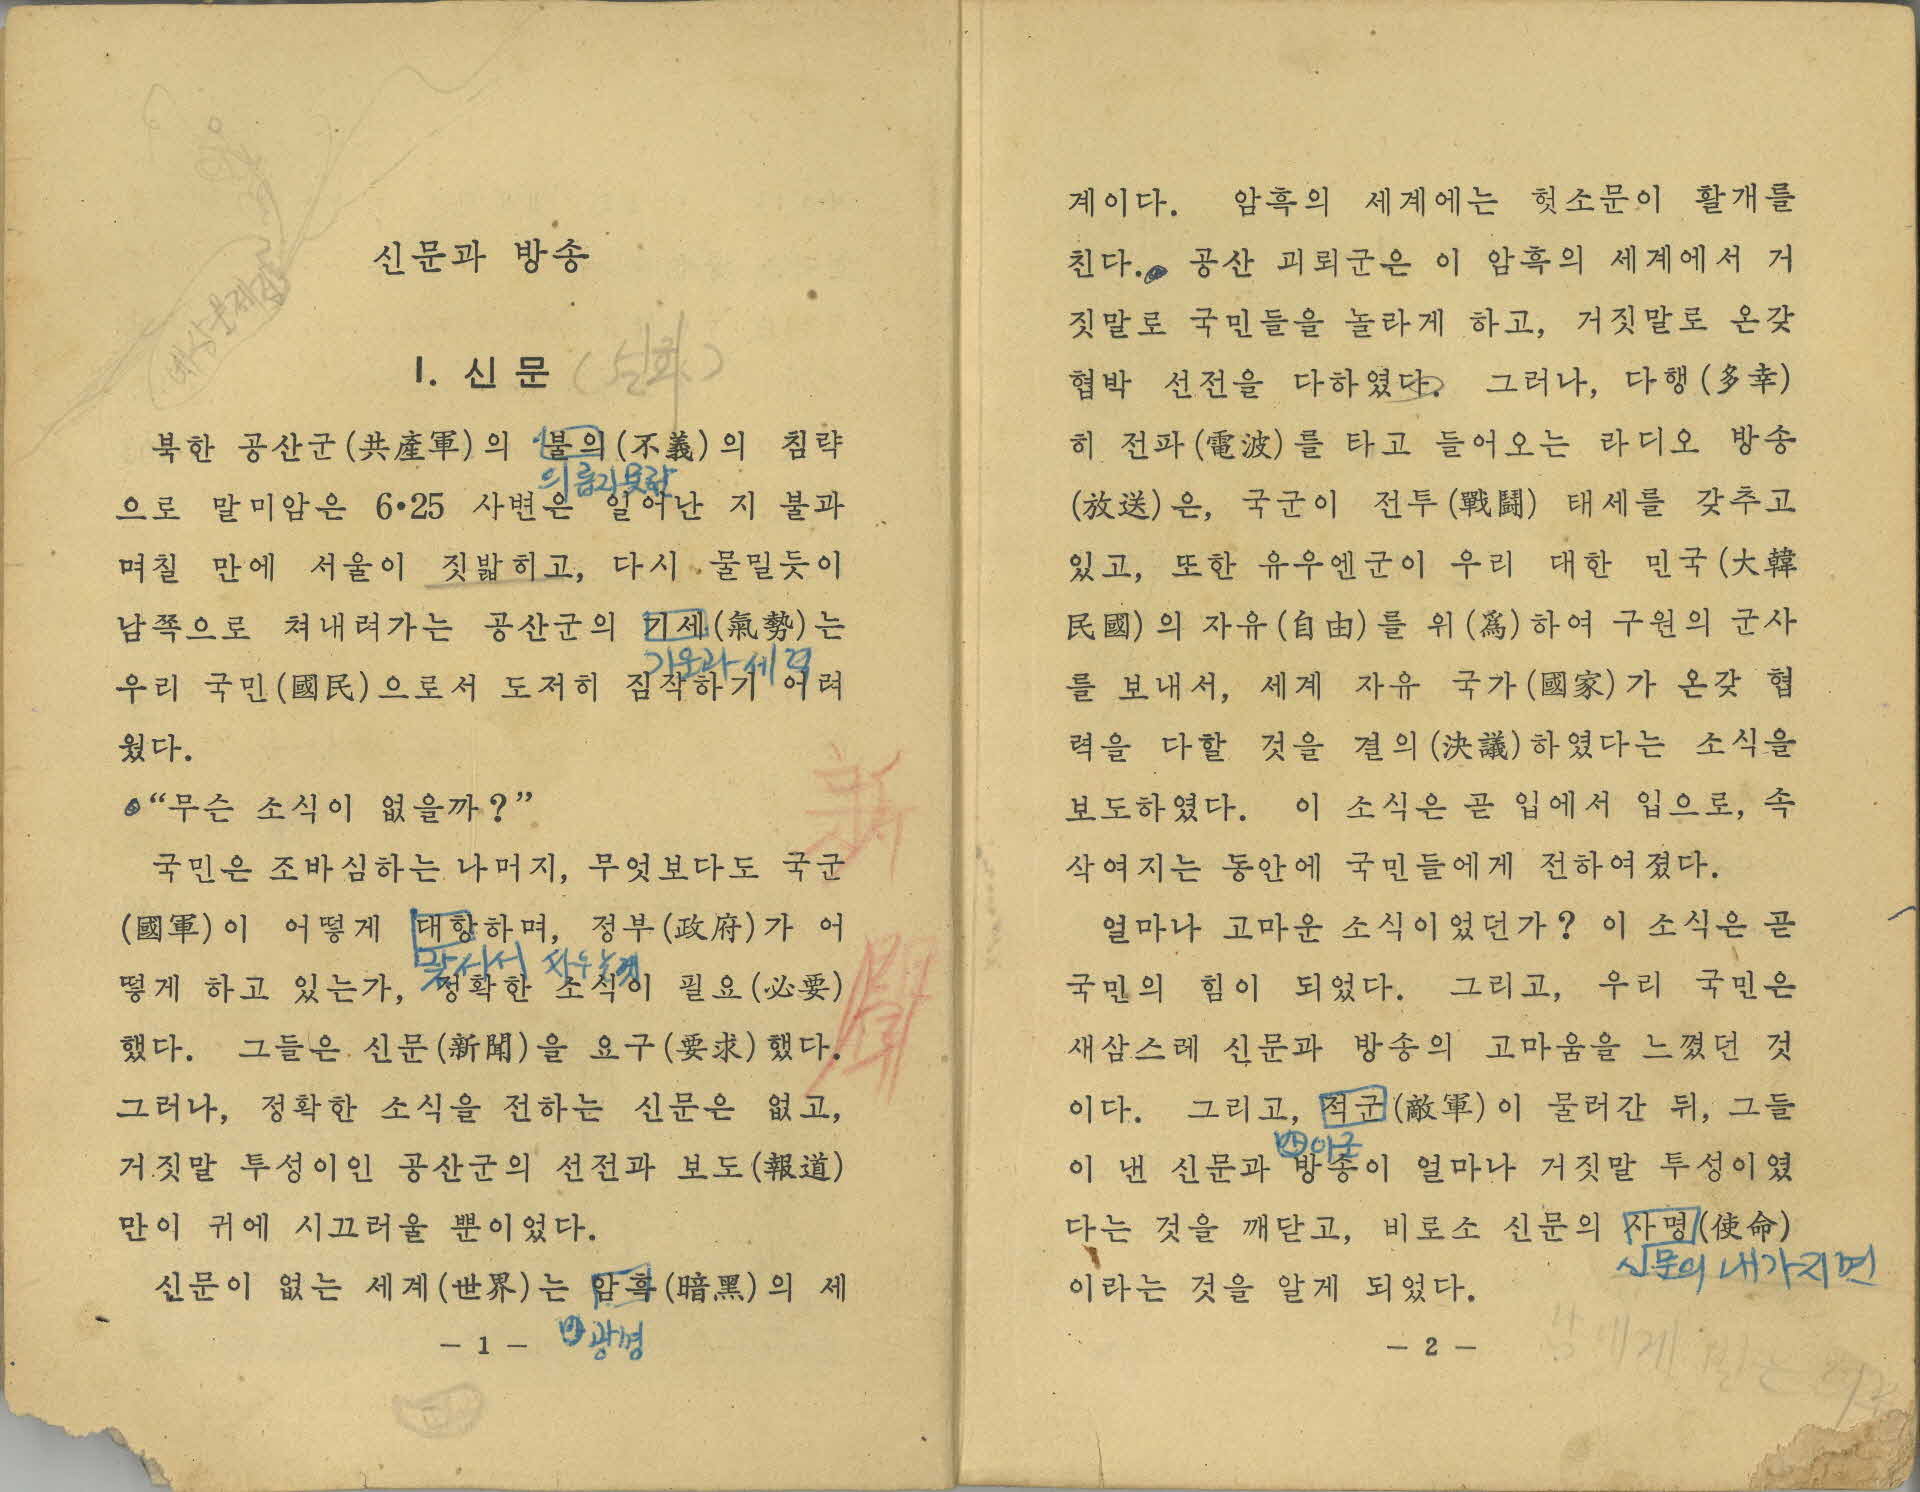 신문과 방송
1. 신문
북한 공산군(共產軍)의 불의(不義)의 침략
으로 말미암은 6•25 사변은 일어난 지 불과
며칠 만에 서울이 짓밟히고, 다시 물밀듯이
남쪽으로 쳐내려가는 공산군의 기세(氣勢)는
기운과 세력
우리 국민(國民)으로서 도저히 짐작하기 어려
웠다.
“무슨 소식이 없을까?”
국민은 조바심하는 나머지, 무엇보다도 국군
(國軍)이 어떻게 대항하며, 정부(政府)가 어
맞서서 싸우는 것
떻게 하고 있는가, 정확한 소식이 필요(必要)
했다. 그들은 신문(新聞)을 요구(要求)했다.
그러나, 정확한 소식을 전하는 신문은 없고,
거짓말 투성이인 공산군의 선전과 보도(報道)
만이 귀에 시끄러울 뿐이었다.
신문이 없는 세계(世界)는 암흑(暗黑)의 세
반 광명
— 1 —
新聞
계이다. 암흑의 세계에는 헛소문이 활개를
친다. 공산 괴뢰군은 이 암흑의 세계에서 거
짓말로 국민들을 놀라게 하고, 거짓말로 온갖
협박 선전을 다하였다. 그러나, 다행(多幸)
히 전파(電波)를 타고 들어오는 라디오 방송
(放送)은, 국군이 전투(戰鬪) 태세를 갖추고
있고, 또한 유우엔군이 우리 대한 민국(大韓
民國)의 자유(自由)를 위(爲)하여 구원의 군사
를 보내서, 세계 자유 국가(國家)가 온갖 협
력을 다할 것을 결의(決議)하였다는 소식을
보도하였다. 이 소식은 곧 입에서 입으로, 속
삭여지는 동안에 국민들에게 전하여졌다.
얼마나 고마운 소식이었던가? 이 소식은 곧
국민의 힘이 되었다. 그리고, 우리 국민은
새삼스레 신문과 방송의 고마움을 느꼈던 것
이다. 그리고, 적군(敵軍)이 물러간 뒤, 그들
반 아군
이 낸 신문과 방송이 얼마나 거짓말 투성이였
다는 것을 깨닫고, 비로소 신문의 사명(使命)
신문의 내가지면
이라는 것을 알게 되었다.
— 2 —